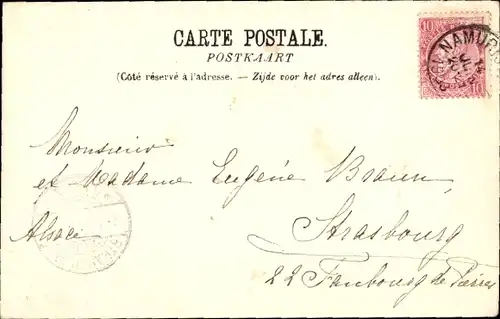 CARTE POSTALE.
POSTKAART
(Côté réservé à l'adresse. — Zijde voor het adres alleen).
10
NAMUR
Monsieur
et Madame Eugène Braun
Strasbourg
Alsace
22 Faubourg de Pierres